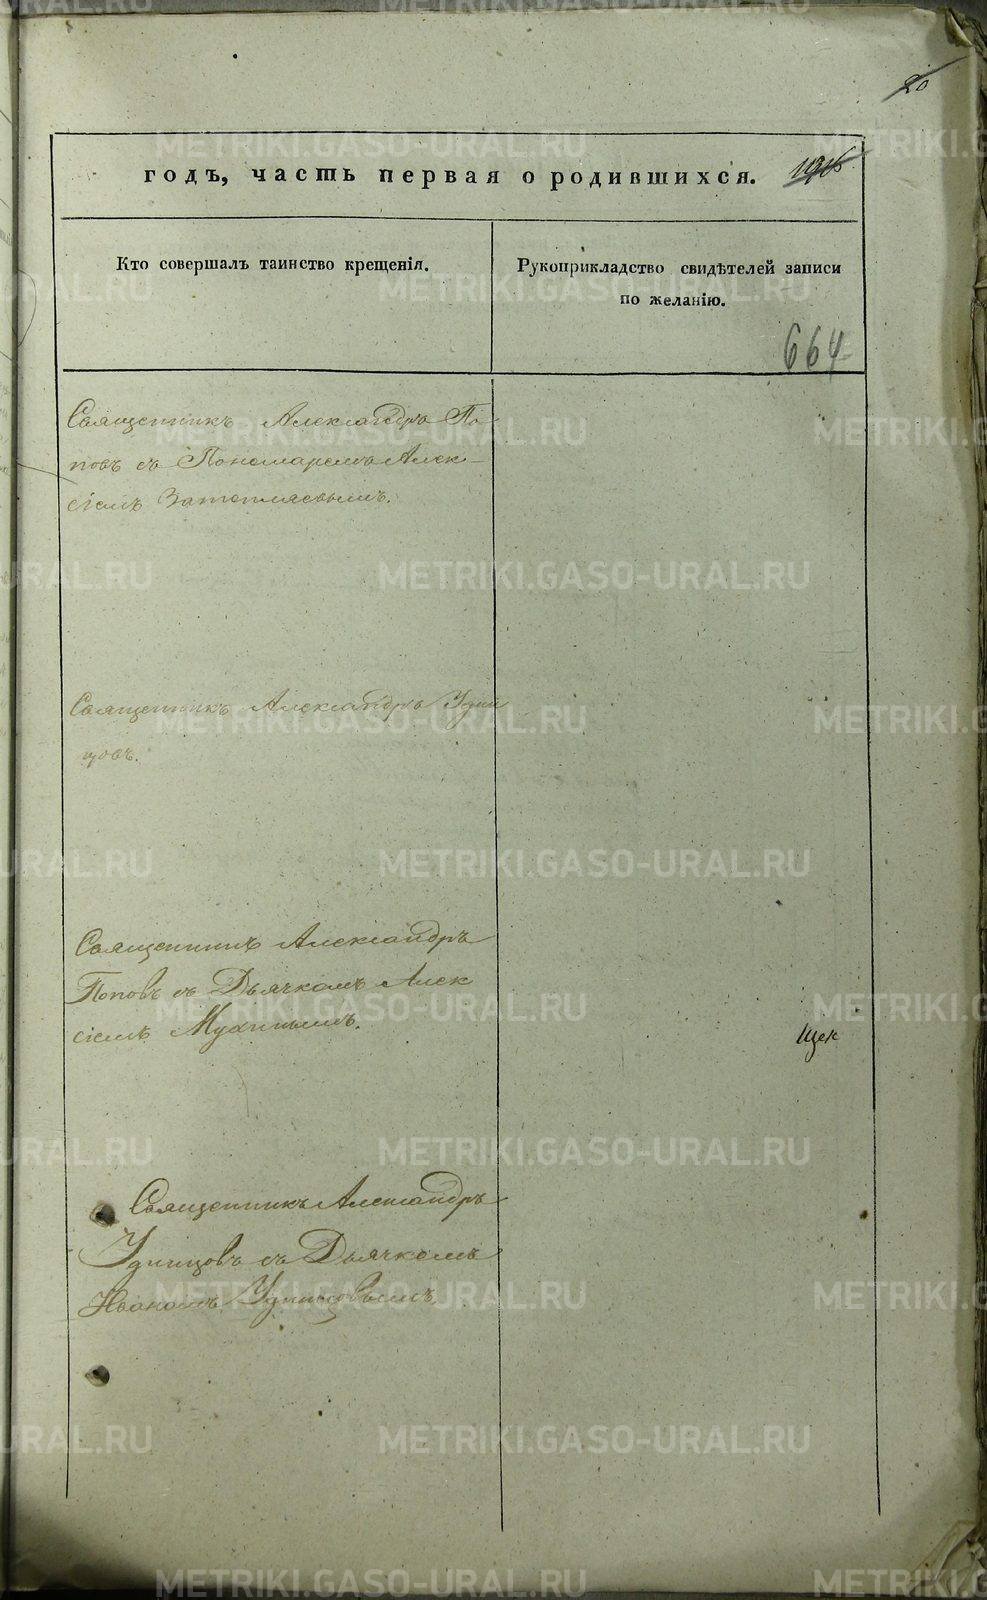 20
годъ, часть первая о родившихся.
Кто совершалъ таинство крещенія.
Рукоприкладство свидѣтелей записи
по желанію.
664
Священникъ Александръ По-
повъ съ Пономаремъ Алек-
сіемъ
Священникъ Александръ Удин
цовъ.
Священникъ Александръ
Поповъ съ Дьячкомъ Алек
сіемъ Мухинымъ.
Щек
Священникъ Александръ
Удинцовъ съ Дьячкомъ
Иваномъ Удинцовымъ.
METRIKI.GASO-URAL.RU